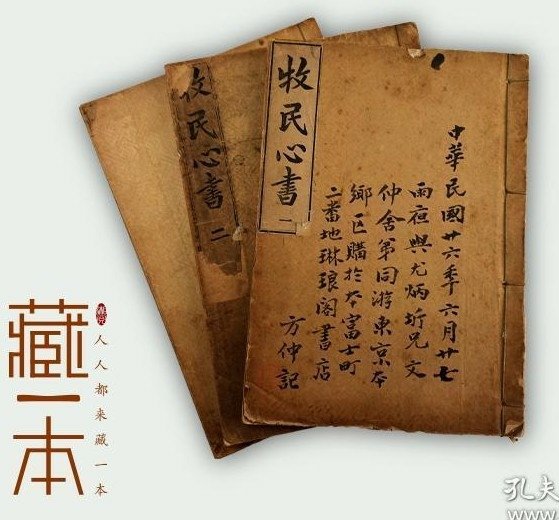 牧民心書 二
牧民心書 一
中華民國廿六秊六月廿七
雨夜與尤炳圻兄文
仲舍弟同游東京本
鄉区購於本富士町
二番地琳琅閣書店
方仲記
藏一本
人人都来藏一本
孔夫
www.